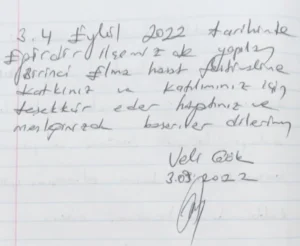 3.4 Eylül 2022 tarihinde
Eğirdir ilçemizde yapılan
Birinci Elma hasat festivaline
katkınız ve katılımınız için
teşekkür eder hayatınız ve
mesleğinizde başarılar dilerim
Veli Gök
3.09.2022